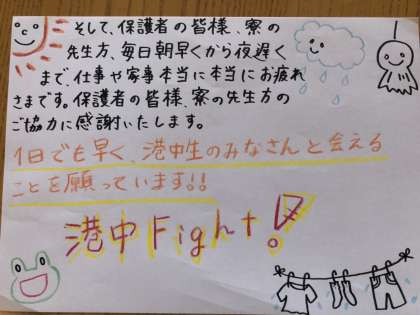 そして、保護者の皆様、寮の
先生方、毎日朝早くから夜遅く
まで、仕事や家事本当に本当にお疲れ
さまです。保護者の皆様、寮の先生方の
ご協力に感謝いたします。
1日でも早く、港中生のみなさんと会える
ことを願っています!!
港中Fight!